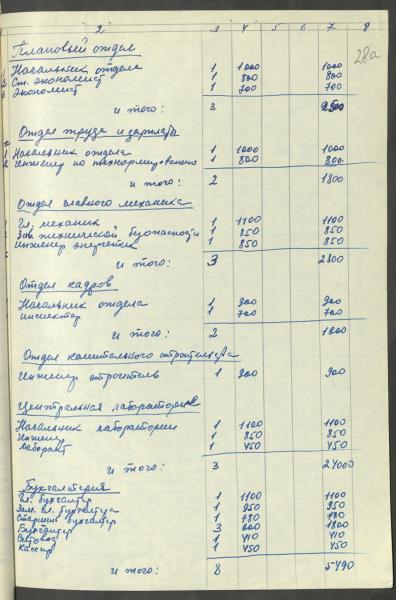 2 3 4 5 6 7 8
28а
Плановый отдел
Начальник отдела 1 1000 1000
Ст. экономист 1 800 800
Экономист 1 700 700
и того: 3 2500
Отдел труда и зарплаты
Начальник отдела 1 1000 1000
Инженер по технормированию 1 800 800
и того: 2 1800
Отдел главного механика
Гл. механик 1 1100 1100
Зав технической безопасности 1 850 850
Инженер энергетик 1 850 850
и того: 3 2800
Отдел кадров
Начальник отдела 1 900 900
инспектор 1 700 700
и того: 2
Отдел капитального строительства
Инженер строитель 1 900 900
Центральная лаборатория
Начальник лаборатории 1 1100 1100
Инженер 1 850 850
Лаборант 1 450 450
и того: 3 24000
Бухгалтерия
Гл. бухгалтер 1 1100 1100
Зам. гл. бухгалтера 1 950 950
Старший бухгалтер 1 780 780
Бухгалтер 3 600 1800
Счетовод 1 410 410
Кассир 1 450 450
и того: 8 5490